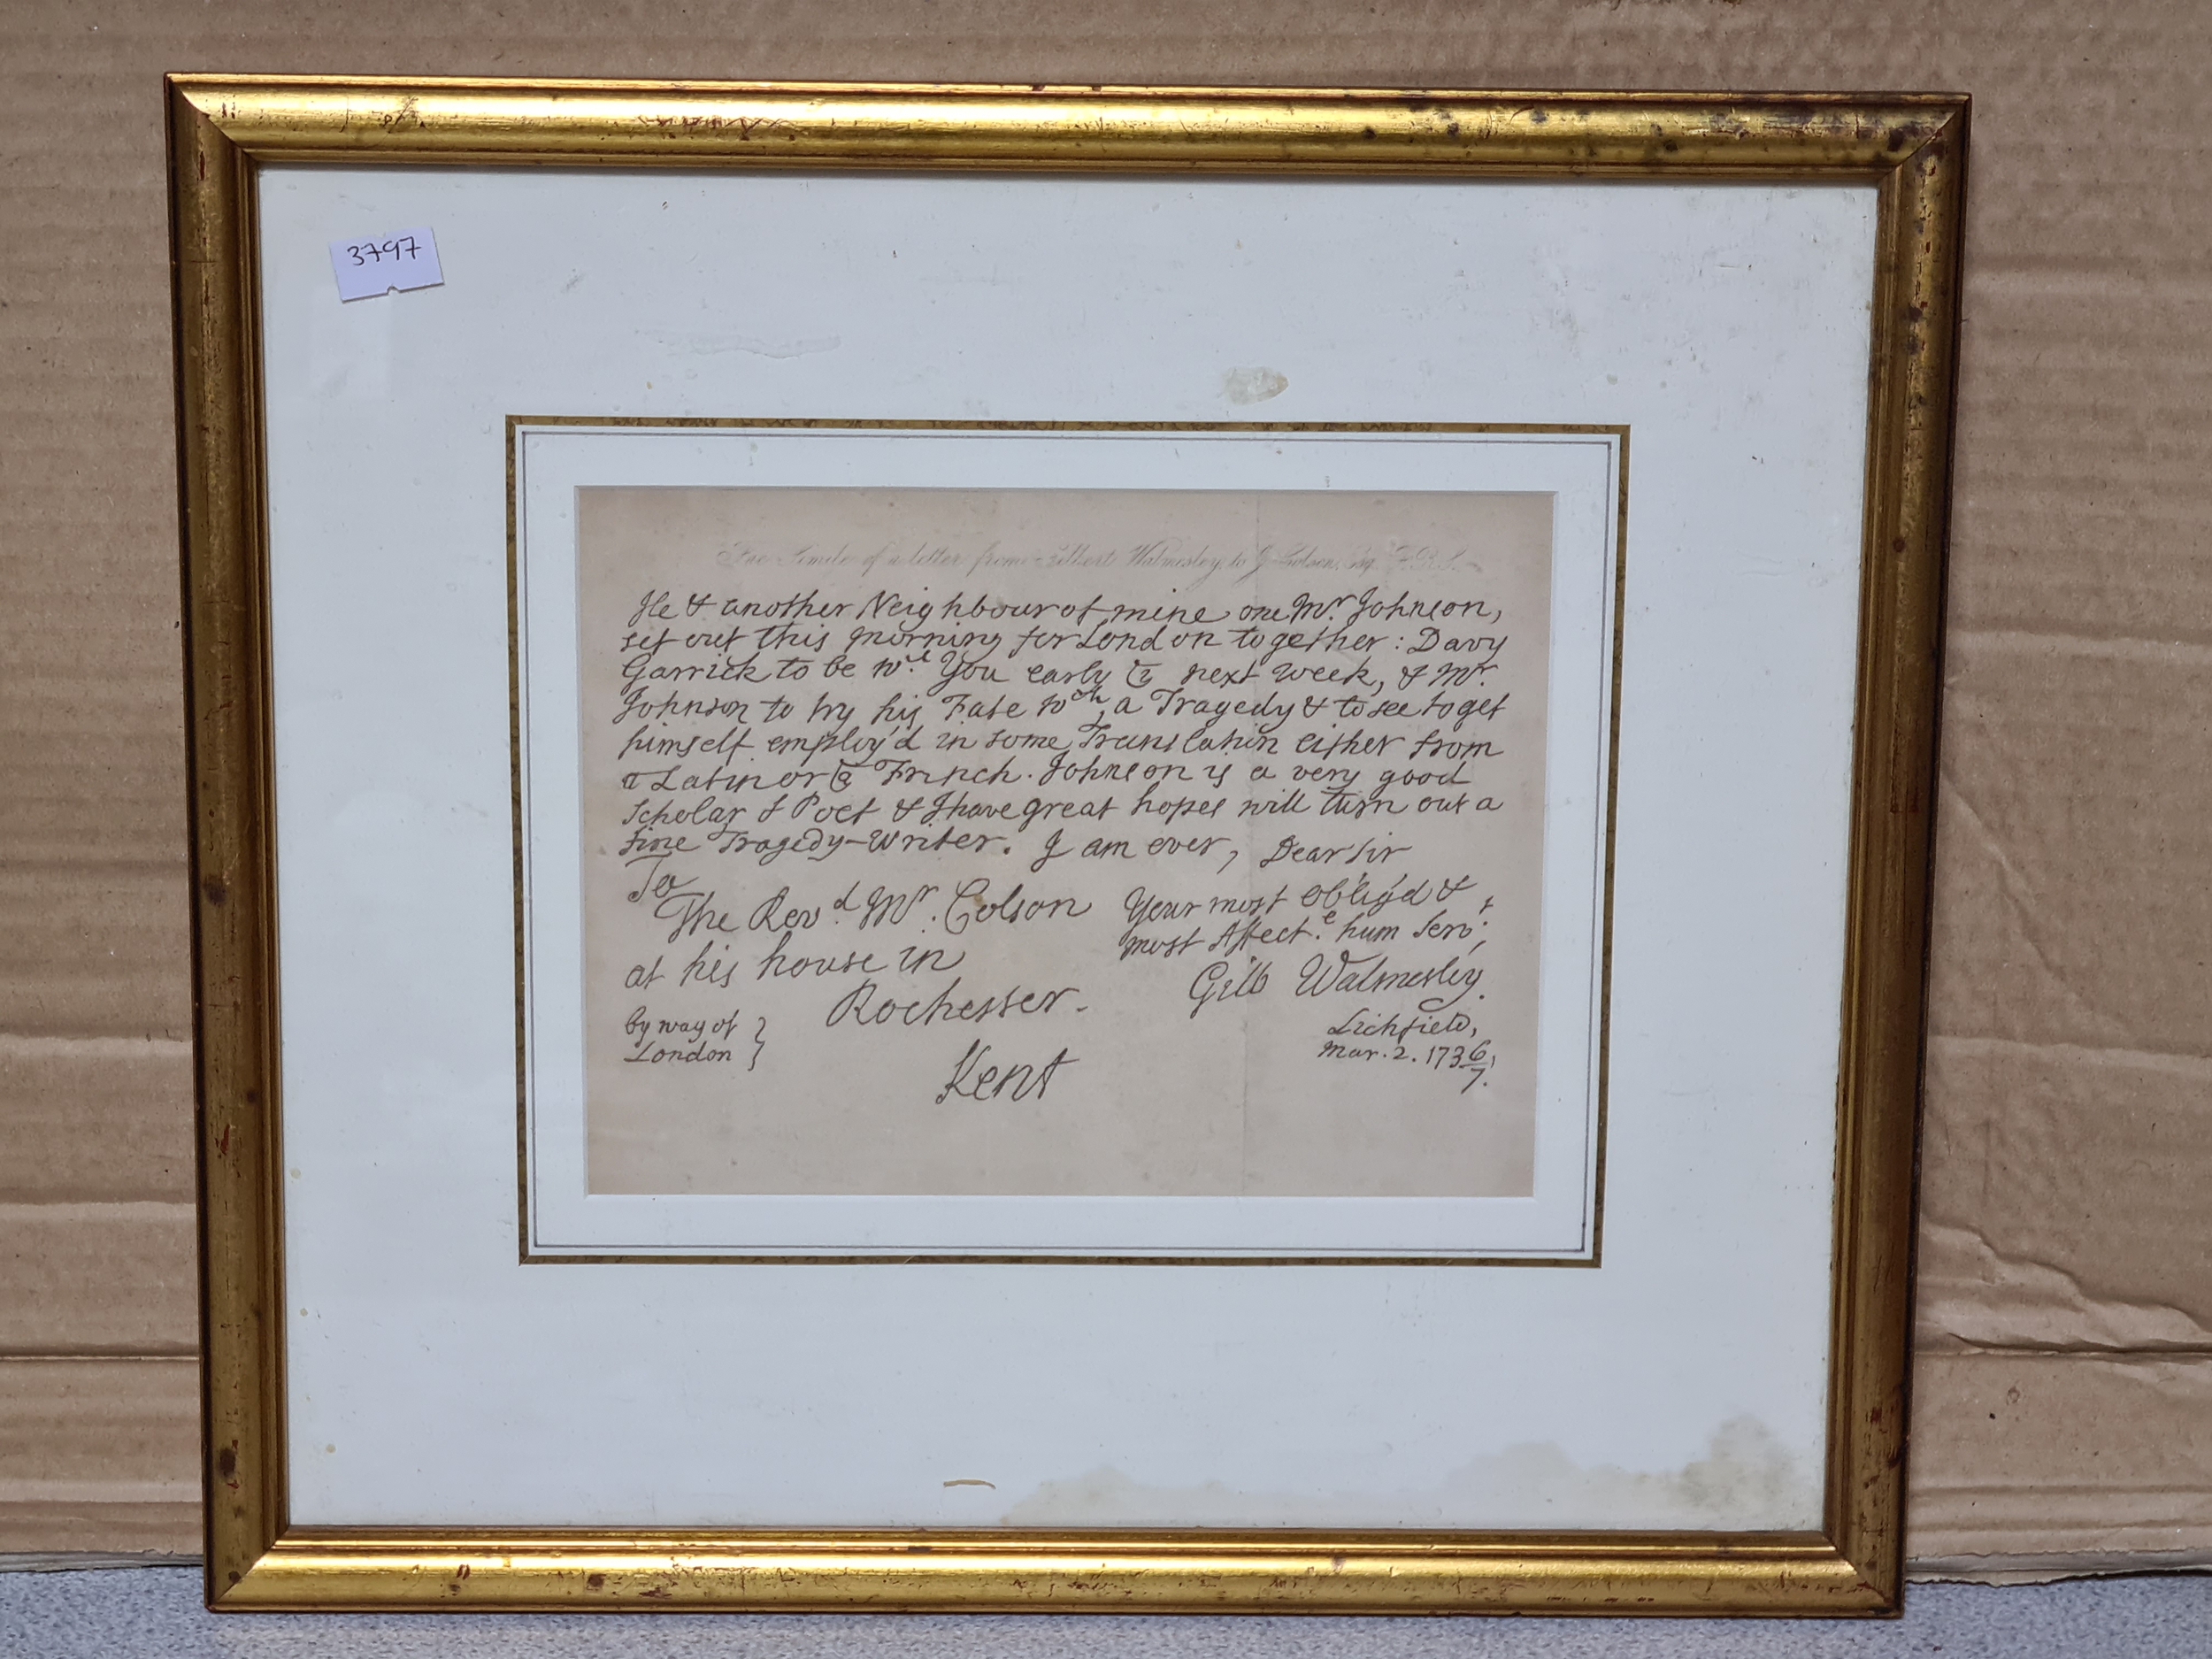 3797
Fac Simile of a letter from Gilbert Walmesley to J Colson, Esq. F.R.S.
He & another Neighbour of mine one Mr. Johnson,
set out this morning for London together: Davy
Garrick to be wth. You early ye next week, & Mr.
Johnson to try his Fate wth. a Tragedy & to see to get
himself employ'd in some Translation either from
ye Latin or ye French. Johnson is a very good
Scholar & Poet & I have great hopes will turn out a
fine Tragedy-Writer. I am ever, Dear Sir
To
The Revd. Mr. Colson
at his house in
Rochester.
Kent
by way of
London
Your most oblig'd &
most Affecte. hum Servt;
Gilb Walmesley.
Lichfield,
Mar. 2. 1736/7.